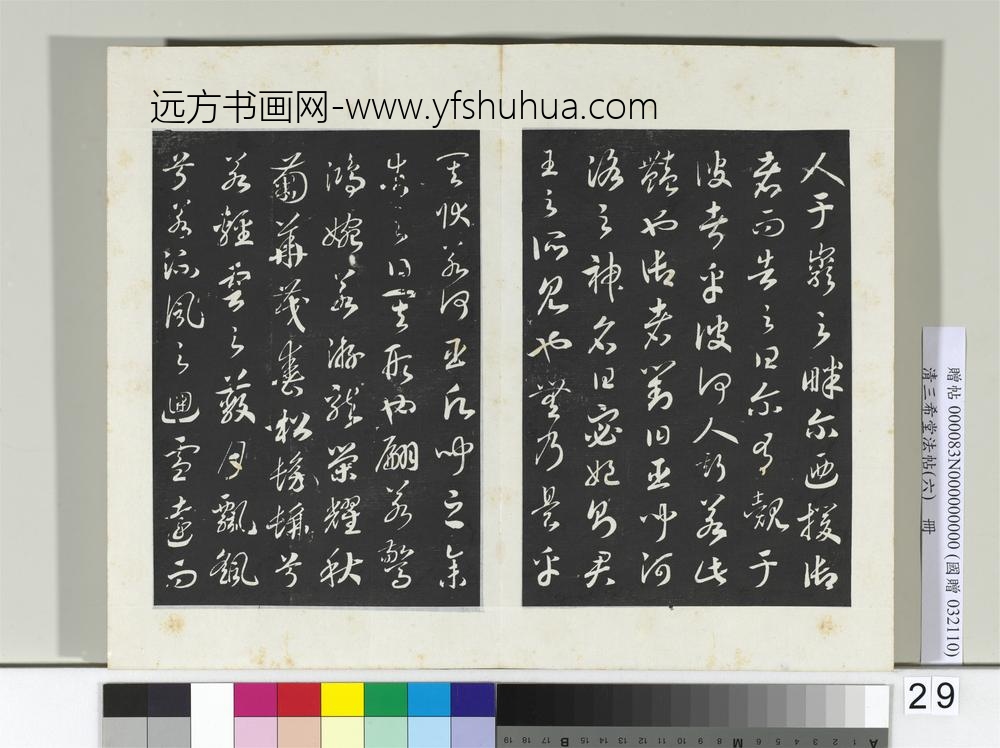 远方书画网-www.yfshuhua.com
人于巖之畔尔迺援御
者而告之曰尔有覿于
彼者乎彼何人斯若此
豔也御者對曰臣聞河
洛之神名曰宓妃則君
王之所見也無乃是乎
其狀若何臣願聞之余
告之曰其形也翩若驚
鴻婉若游龍榮耀秋
菊華茂春松髣髴兮
若輕雲之蔽月飄颻
兮若流風之迴雪遠而
贈帖 000083N000000000 (國贈 032110)
清三希堂法帖(六) 冊
29